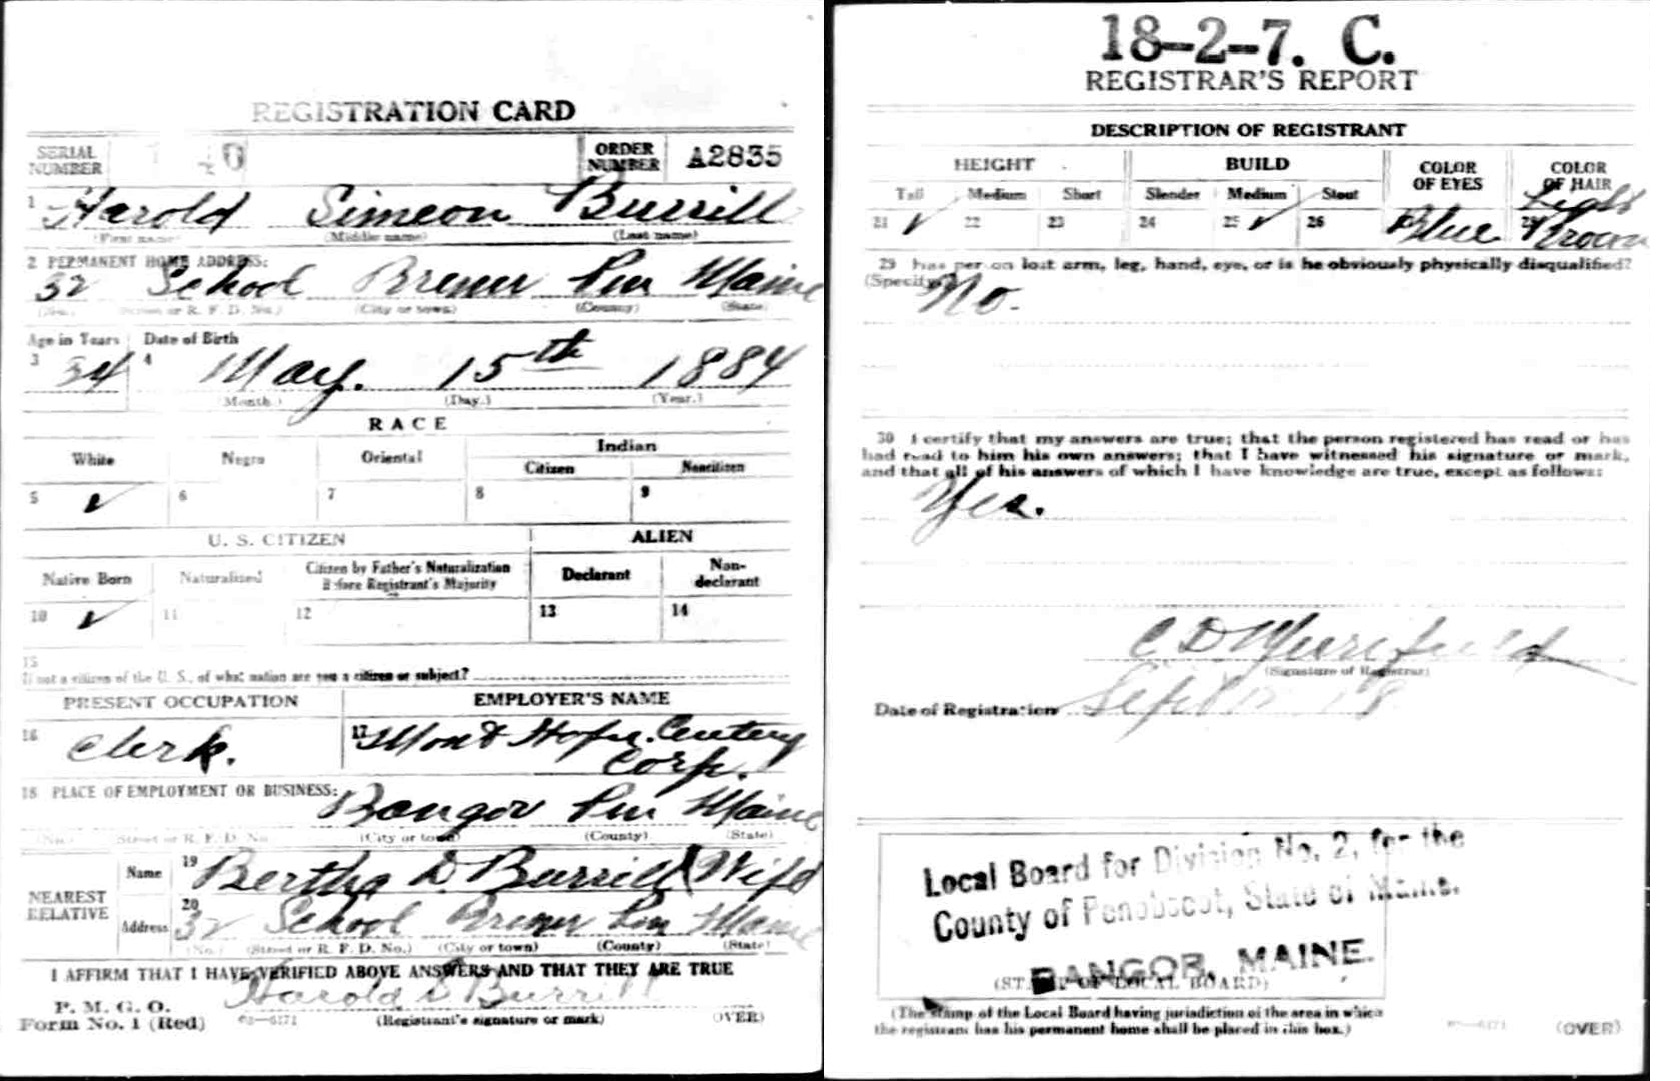 REGISTRATION CARD
SERIAL NUMBER
ORDER NUMBER A2835
1 Harold Simeon Burrill
(First name) (Middle name) (Last name)
2 PERMANENT HOME ADDRESS:
32 School Brewer Pen Maine
(No.) (Street or R. F. D. No.) (City or town) (County) (State)
Age in Years Date of Birth
3 34 4 May. 15th 1884
(Month.) (Day.) (Year.)
RACE
White Negro Oriental Indian
Citizen Noncitizen
5 ✓ 6 7 8 9
U. S. CITIZEN ALIEN
Native Born Naturalized Citizen by Father's Naturalization Before Registrant's Majority Declarant Non-declarant
10 ✓ 11 12 13 14
15
If not a citizen of the U. S., of what nation are you a citizen or subject?
PRESENT OCCUPATION EMPLOYER'S NAME
16 Clerk. 17 Mont Hope. Centery
Corp.
18 PLACE OF EMPLOYMENT OR BUSINESS:
Bangor Pen Maine
(No.) (Street or R. F. D. No.) (City or town) (County) (State)
NEAREST RELATIVE
Name 19 Bertha D Burrill (Wife
Address 20 32 School Brewer Pen Maine
(No.) (Street or R. F. D. No.) (City or town) (County) (State)
I AFFIRM THAT I HAVE VERIFIED ABOVE ANSWERS AND THAT THEY ARE TRUE
P. M. G. O.
Form No. 1 (Red)
Harold S Burrill
(Registrant's signature or mark) (OVER)
18-2-7. C.
REGISTRAR'S REPORT
DESCRIPTION OF REGISTRANT
HEIGHT BUILD COLOR OF EYES COLOR OF HAIR
Tall Medium Short Slender Medium Stout
21 ✓ 22 23 24 25 ✓ 26 Blue Light Brown
29 Has person lost arm, leg, hand, eye, or is he obviously physically disqualified?
(Specify.) No.
30 I certify that my answers are true; that the person registered has read or has
had read to him his own answers; that I have witnessed his signature or mark,
and that all of his answers of which I have knowledge are true, except as follows:
Yes.
C D Merrifield
(Signature of Registrar)
Date of Registration Sept 12 18
Local Board for Division No. 2, for the
County of Penobscot, State of Maine.
BANGOR, MAINE.
(STAMP OF LOCAL BOARD)
(The stamp of the Local Board having jurisdiction of the area in which
the registrant has his permanent home shall be placed in this box.)
(OVER)